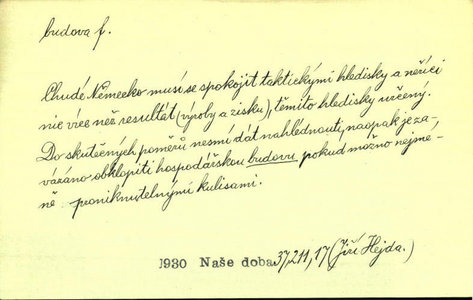 budova f.
Chudé Německo musí se spokojit taktickými hledisky a neříci
nic více než resultát (výroby a zisku), těmito hledisky určený.
Do skutečných poměrů nesmí dát nahlédnouti, naopak je za-
vázáno obklopiti hospodářskou budovu, pokud možno nejmé-
ně proniknutelnými kulisami.
1930 Naše doba 37, 211, 17 (Jiří Hejda.)